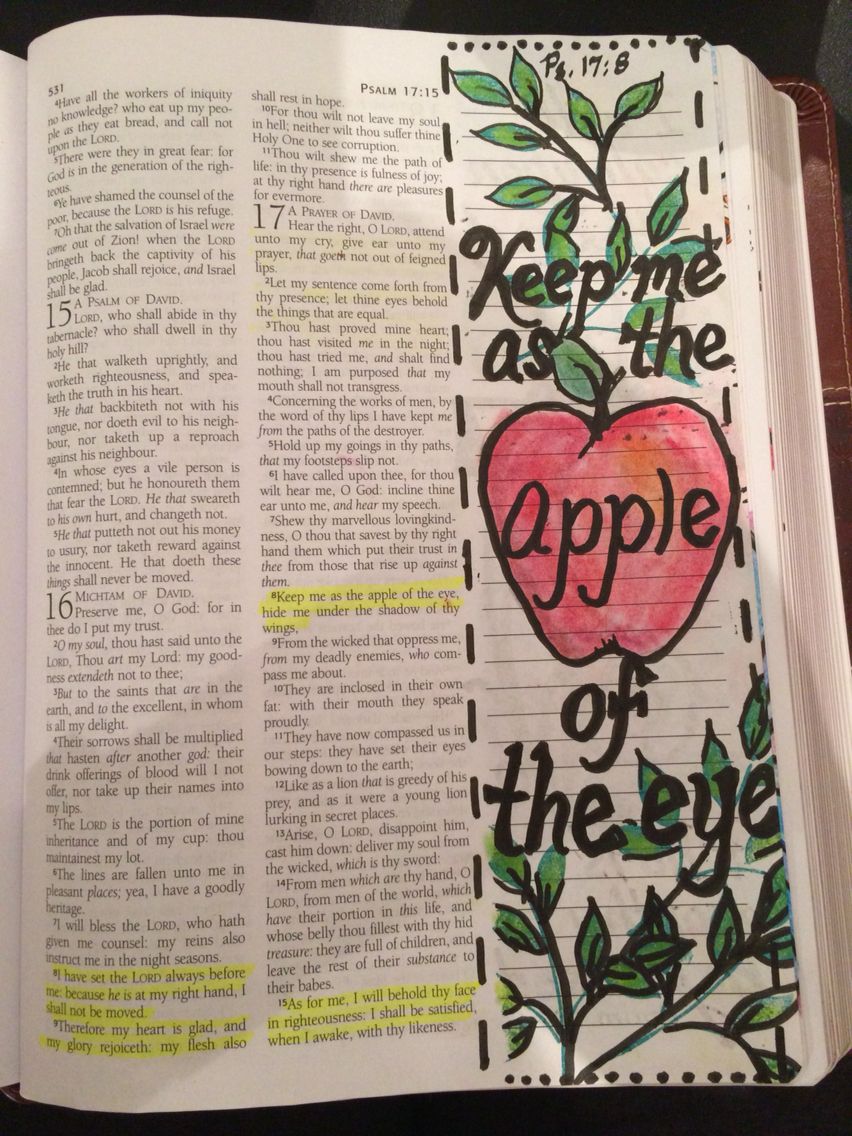 531
PSALM 17:15
4Have all the workers of iniquity
no knowledge? who eat up my peo-
ple as they eat bread, and call not
upon the LORD.
5There were they in great fear: for
God is in the generation of the righ-
teous.
6Ye have shamed the counsel of the
poor, because the LORD is his refuge.
7Oh that the salvation of Israel were
come out of Zion! when the LORD
bringeth back the captivity of his
people, Jacob shall rejoice, and Israel
shall be glad.
15 A PSALM OF DAVID.
LORD, who shall abide in thy
tabernacle? who shall dwell in thy
holy hill?
2He that walketh uprightly, and
worketh righteousness, and spea-
keth the truth in his heart.
3He that backbiteth not with his
tongue, nor doeth evil to his neigh-
bour, nor taketh up a reproach
against his neighbour.
4In whose eyes a vile person is
contemned; but he honoureth them
that fear the LORD. He that sweareth
to his own hurt, and changeth not.
5He that putteth not out his money
to usury, nor taketh reward against
the innocent. He that doeth these
things shall never be moved.
16 MICHTAM OF DAVID.
Preserve me, O God: for in
thee do I put my trust.
2O my soul, thou hast said unto the
LORD, Thou art my Lord: my good-
ness extendeth not to thee;
3But to the saints that are in the
earth, and to the excellent, in whom
is all my delight.
4Their sorrows shall be multiplied
that hasten after another god: their
drink offerings of blood will I not
offer, nor take up their names into
my lips.
5The LORD is the portion of mine
inheritance and of my cup: thou
maintainest my lot.
6The lines are fallen unto me in
pleasant places; yea, I have a goodly
heritage.
7I will bless the LORD, who hath
given me counsel: my reins also
instruct me in the night seasons.
8I have set the LORD always before
me: because he is at my right hand, I
shall not be moved.
9Therefore my heart is glad, and
my glory rejoiceth: my flesh also
shall rest in hope.
10For thou wilt not leave my soul
in hell; neither wilt thou suffer thine
Holy One to see corruption.
11Thou wilt shew me the path of
life: in thy presence is fulness of joy;
at thy right hand there are pleasures
for evermore.
17 A PRAYER OF DAVID.
Hear the right, O LORD, attend
unto my cry, give ear unto my
prayer, that goeth not out of feigned
lips.
2Let my sentence come forth from
thy presence; let thine eyes behold
the things that are equal.
3Thou hast proved mine heart;
thou hast visited me in the night;
thou hast tried me, and shalt find
nothing; I am purposed that my
mouth shall not transgress.
4Concerning the works of men, by
the word of thy lips I have kept me
from the paths of the destroyer.
5Hold up my goings in thy paths,
that my footsteps slip not.
6I have called upon thee, for thou
wilt hear me, O God: incline thine
ear unto me, and hear my speech.
7Shew thy marvellous lovingkind-
ness, O thou that savest by thy right
hand them which put their trust in
thee from those that rise up against
them.
8Keep me as the apple of the eye,
hide me under the shadow of thy
wings,
9From the wicked that oppress me,
from my deadly enemies, who com-
pass me about.
10They are inclosed in their own
fat: with their mouth they speak
proudly.
11They have now compassed us in
our steps: they have set their eyes
bowing down to the earth;
12Like as a lion that is greedy of his
prey, and as it were a young lion
lurking in secret places.
13Arise, O LORD, disappoint him,
cast him down: deliver my soul from
the wicked, which is thy sword:
14From men which are thy hand, O
LORD, from men of the world, which
have their portion in this life, and
whose belly thou fillest with thy hid
treasure: they are full of children, and
leave the rest of their substance to
their babes.
15As for me, I will behold thy face
in righteousness: I shall be satisfied,
when I awake, with thy likeness.
Ps. 17:8
Keep me
as the
apple
of
the eye